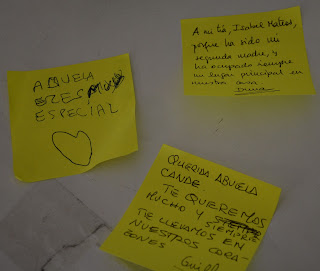 ABUELA
ERES
ESPECIAL
A mi tía, Isabel Mateos,
porque ha sido mi
segunda madre, y
ha ocupado siempre
un lugar principal en
nuestra casa
QUERIDA ABUELA
CANDE
TE QUEREMOS
MUCHO Y SIEMPRE
TE LLEVAMOS EN
NUESTROS CORA-
ZONES